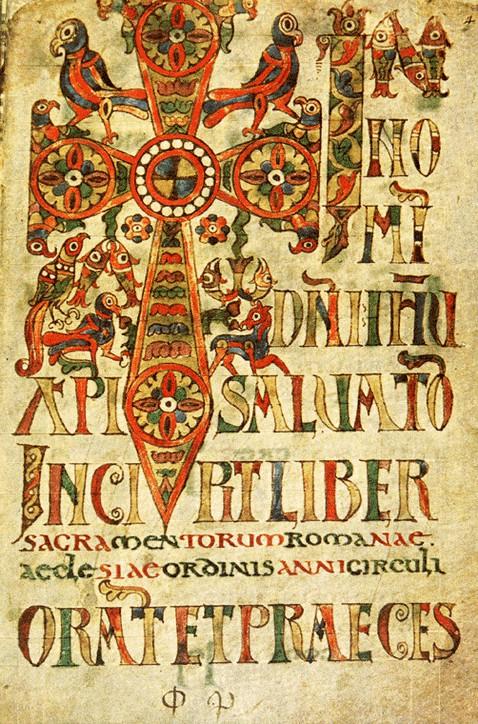 4
IN
NO
MĪ
DN̄I IH̄U
XPI SALUATO
INCIPIT LIBER
SACRAMENTORUM ROMANAE:
AECLESIAE ORDINIS ANNI CIRCULI
ORAT ET PRAECES